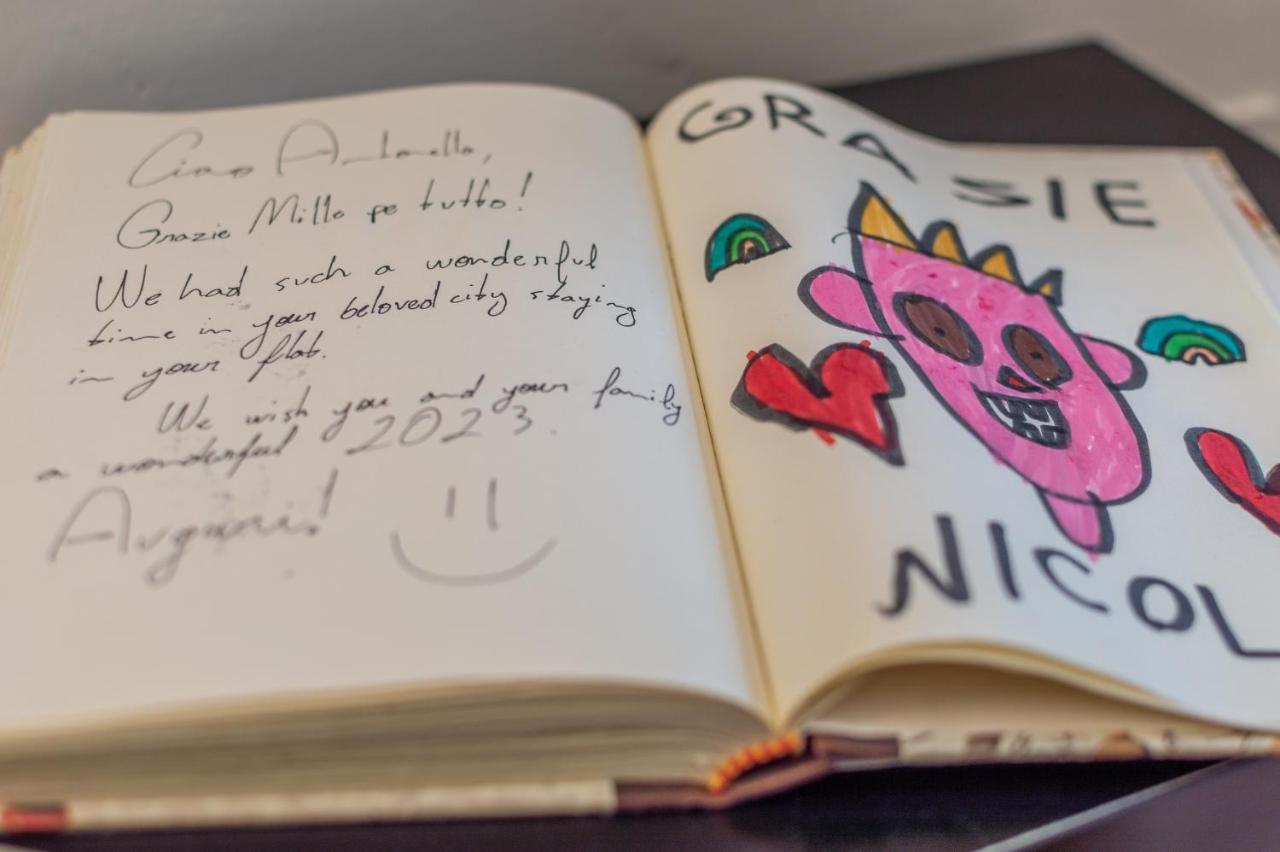 Ciao Antonello,
Grazie Mille pe tutto!
We had such a wonderful
time in your beloved city staying
in your flat.
We wish you and your family
a wonderful 2023.
Auguri!
GRASIE
NICOL